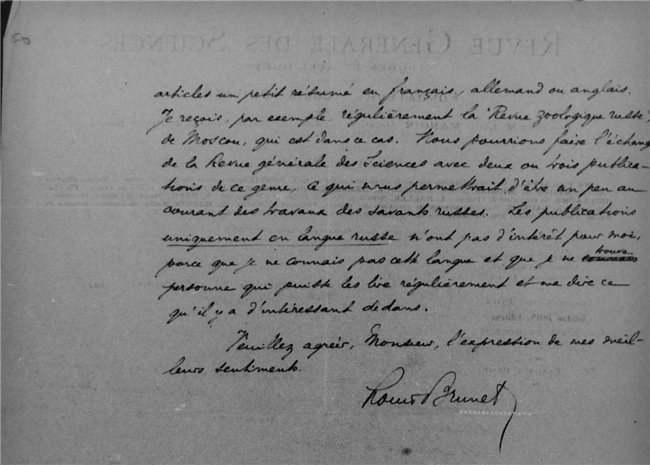 REVUE GÉNÉRALE DES SCIENCES
articles un petit résumé en français, allemand ou anglais.
Je reçois, par exemple régulièrement la "Revue zoologique russe"
de Moscou, qui est dans ce cas. Nous pourrions faire l'échange
de la Revue générale des Sciences avec deux ou trois publica-
tions de ce genre, ce qui nous permettrait d'être un peu au
courant des travaux des savants russes. Les publications
uniquement en langue russe n'ont pas d'intérêt pour moi,
parce que je ne connais pas cette langue et que je ne connais trouve
personne qui puisse les lire régulièrement et me dire ce
qu'il y a d'intéressant dedans.
Veuillez agréer, Monsieur, l'expression de mes meil-
leurs sentiments.
Louis Brunet